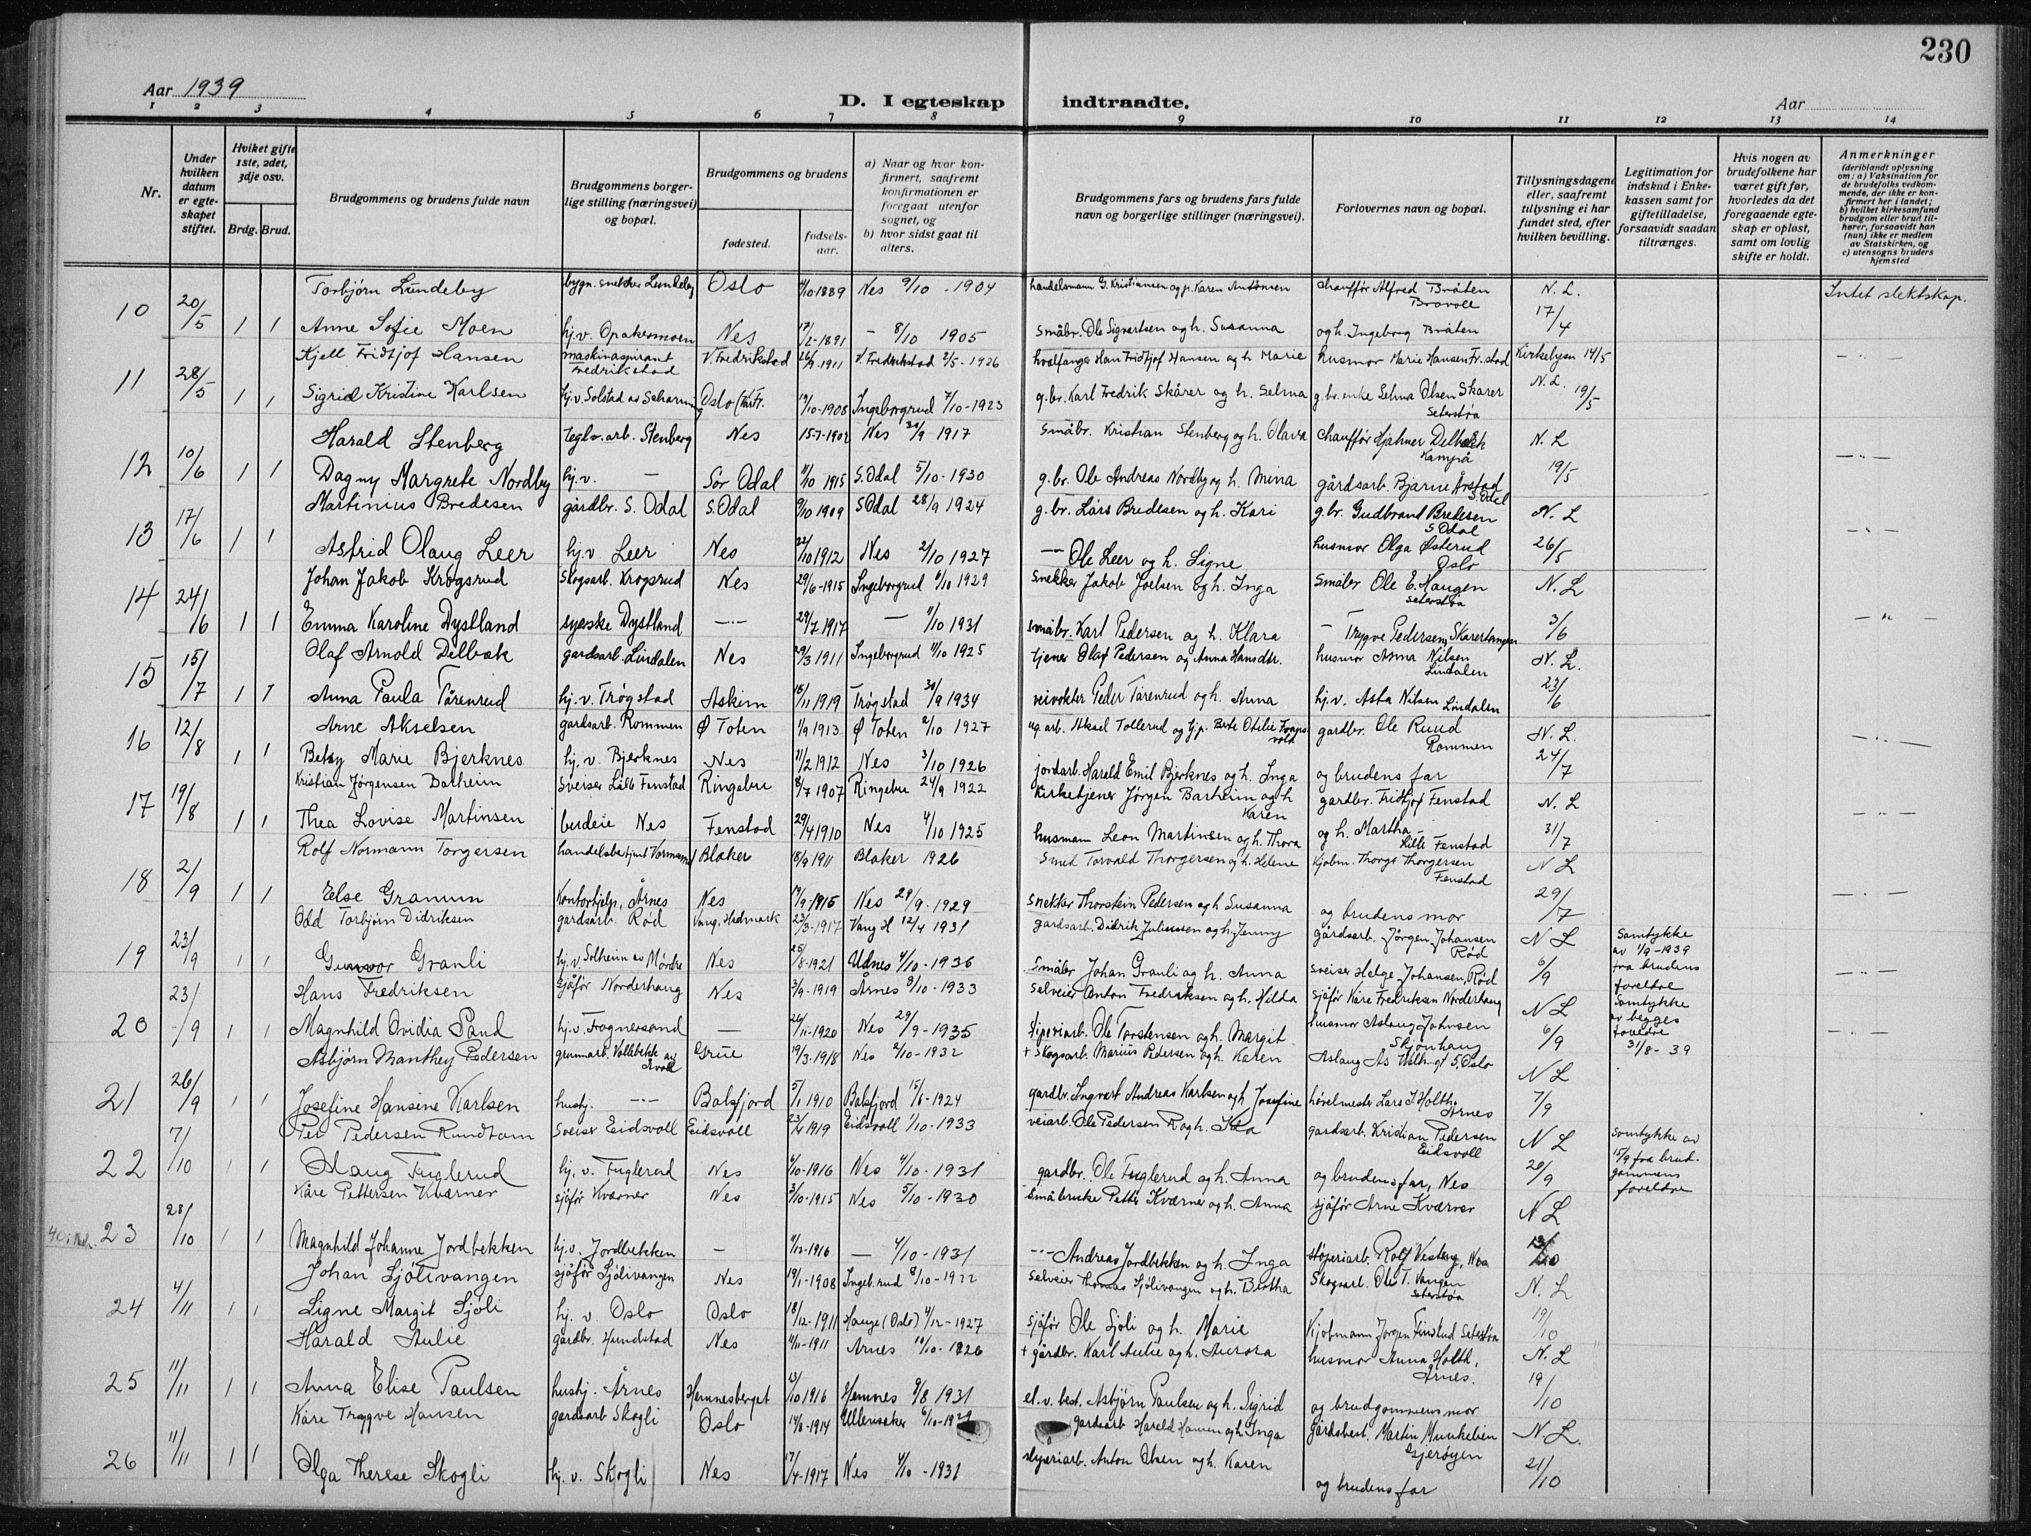 230
Aar 1939
D. I egteskap indtraadte.
Aar
1 2 3 4 5 6 7 8 9 10 11 12 13 14
Nr.
Under hvilken datum er egteskapet stiftet.
Hviket gifte 1ste, 2det, 3dje osv.
Brdg. Brud.
Brudgommens og brudens fulde navn
Brudgommens borgerlige stilling (næringsvei) og bopæl.
Brudgommens og brudens
fødested.
fødselsaar.
a) Naar og hvor konfirmert, saafremt konfirmationen er foregaat utenfor sognet, og
b) hvor sidst gaat til alters.
Brudgommens fars og brudens fars fulde navn og borgerlige stillinger (næringsvei).
Forlovernes navn og bopæl.
Tillysningsdagene eller, saafremt tillysning ei har fundet sted, efter hvilken bevilling.
Legitimation for indskud i Enkekassen samt for giftetilladelse, forsaavidt saadan tiltrænges.
Hvis nogen av brudefolkene har været gift før, hvorledes da det foregaaende egteskap er opløst, samt om lovlig skifte er holdt.
Anmerkninger
(deriblandt oplysning om: a) Vaksination for de brudefolks vedkommende, der ikke er konfirmert her i landet; b) hvilket kirkesamfund brudgom eller brud tilhører, forsaavidt han (hun) ikke er medlem av Statskirken, og c) utensogns bruders hjemsted
10 20/5 Torbjørn Lundeby bygn. snekker Lundeby Oslo 1889 Nes 9/10 - 1904 handelsmann G. Kristiansen og p. Karen Antonsen chauffør Alfred Bråten Brovoll N. L. Intet slektskap.
1 1 Anne Sofie Moen hj. v. Opakermoen Nes 17/2-1891 - 8/10 1905 småbr. Ole Sigvartsen og h. Susanna og h. Ingeborg Bråten 17/4
11 28/5 Kjell Fridtjof Hansen maskinaspirant Fredrikstad V. Fredrikstad 1911 V. Fredrikstad 2/5-1926 hvalfanger Hans Fridtjof Hansen og h Marie husmor Marie Hansen Fr.stad Kirkebyen 14/5
1 1 Sigrid Kristine Karlsen hj. v. Solstad av Oslo 1908 Ingeborgrud 7/10-1923 g.br. Karl Fredrik Skårer og h. Selma g.br. enke Selma Olsen Skårer Seterstøa N. L. 19/5
12 10/6 Harald Stenberg teglv.arb. Stenberg Nes 15-7-1902 Nes 1917 Småbr. Kristian Stenberg og h. Olava chauffør Hjalmar Delbæk N. L
1 1 Dagny Margrete Nordby hj. v. - Sør Odal 11/10 1915 S. Odal 5/10-1930 g.br. Ole Andreas Nordby og h. Mina gårdsarb. Bjarne Årstad S. Odal 19/5
13 17/6 Martinius Bredesen gårdbr. S. Odal S. Odal 9/10 1909 S. Odal 28/9 1924 g.br. Lårs Bredesen og h. Kari g.br. Gudbrand Bredesen S Odal N. L
1 1 Astrid Olaug Leer hj. v Leer Nes 22/10 1912 Nes 2/10-1927 Ole Leer og h. Signe husmor Olga Østerud Oslo 26/5
14 24/6 Johan Jakob Krogsrud Skogsarb. Krogsrud Nes 29/6-1915 Ingeborgrud 6/10 1929 snekker Jakob Joelsen og h. Inga Småbr Ole E. Haugen Seterstøa N. L
1 1 Emma Karoline Dystland syerske Dystland 29/7 1917 - 11/10 1931 småbr. Karl Pedersen og h. Klara - Trygve Pedersen, Skarertangen 3/6
15 15/7 Olaf Arnold Delbæk gardsarb. Lindalen Nes 29/3 1911 Ingeborgrud 11/10 1925 tjener Olaf Pedersen og Anna Hansdtr. husmor Anna Nilsen Lindalen N. L.
1 1 Anna Paula Tårenrud hj. v. Trøgstad Askim 18/11 1919 Trøgstad 30/9 1934 veivokter Peder Tårenrud og h. Anna hj. v. Asta Nilsen Lindalen 23/6
16 12/8 Arne Akselsen gardsarb. Rommen Ø Toten 1/9 1913 Ø Toten 2/10 1927 ug arb. Aksel Tollerud og Berte Otilie gardbr. Ole Ruud Rommen N. L.
1 1 Betsy Marie Bjerknes hj. v. Bjerknes Nes 21/2 1912 Nes 3/10 1926 jordarb. Harald Emil Bjerknes og h. Inga og brudens far 24/7
17 19/8 Kristian Jørgensen Dalheim Sveiser Lille Fenstad Ringebu 8/7 1907 Ringebu 24/9 1922 kirketjener Jørgen og h Karen gardbr. Fridtjof Fenstad N. L
1 1 Thea Lovise Martinsen budeie Nes Fenstad 29/4 1910 Nes 4/10 1925 husmann Leon Martinsen og h. Thora og h. Martha Lille Fenstad 31/7
18 2/9 Rolf Normann Torgersen handelsbetjent Vormsund Blaker 18/9 1911 Blaker 1926 Smed Torvald Thorgersen og h. Helene Kjøbm. Thorgersen Fenstad N L
1 1 Else Granum kontorhjelp, Årnes Nes 17/9 1915 Nes 29/9-1929 snekker Thorstein Pedersen og h Susanna og brudens mor 29/7
19 23/9 Odd Torbjørn Didriksen gardsarb. Rød Vang, Hedmark 23/3-1917 Vang H 12/4 1931 gardsarb. Didrik Juliussen og h. Jenny gårdsarb. Jørgen Johansen Rød N L Samtykke av 1/9-1939 fra brudens foreldre
1 1 Gunvor Granli hj. v. Solheim av Mørdre Nes 25/8-1921 Udnes 4/10-1936 Småbr Johan Granli og h. Anna sveiser Helge Johansen, Rød 6/9
20 23/9 Hans Fredriksen Sjåfør Norderhaug Nes 3/9-1919 Årnes 8/10-1933 selveier Anton Fredriksen og h. Hilda sjåfør Kåre Fredriksen Norderhaug N L Samtykke av begges foreldre 31/8-39
1 1 Magnhild Ovidia Sand hj. v. Frognersand - 26/11-1920 Nes 29/9-1935 Ole Torstensen og h. Margit husmor Aslaug Johnsen Skjønhaug 6/9
21 26/9 Asbjørn Manthey Pedersen Grue 19/3-1918 Nes 2/10-1932 + Skogsarb. Marius Pedersen og h. Karen Aslaug Ås Oslo N L
1 1 Josefine Hansine Karlsen hushj. Balsfjord 5/1 1910 Balsfjord 15/6-1924 gardbr. Ingvart Andreas Karlsen og h Josefine høvelmester Lars I Holth Årnes 7/9
22 7/10 Per Pedersen Rundtom Sveiser Eidsvoll Eidsvoll 1919 Eidsvoll 1/10-1933 veiarb. Ole Pedersen R og h. Ida gardsarb. Kristian Pedersen Eidsvoll N L Samtykke av 15/9 fra brudgommens foreldre
1 1 Olaug Fuglerud hj. v. Fuglerud Nes 4/10-1916 Nes 4/10-1931 gardbr. Ole Fuglerud og h. Anna og brudens far, Nes 20/9
40. 23 28/10 Kåre Pettersen Kværner sjåfør Kværner Nes 3/10-1915 Nes 5/10-1930 Småbruker Petter Kværner og h. Anna sjåfør Arne Kværner N L
1 1 Magnhild Johanne Jordbekken hj. v. Jordbekken - 4/12-1916 - 4/10-1931 Andreas Jordbekken og h. Inga støperiarb. Rolf Vesteng, Nes
24 4/11 Johan Sjølivangen sjåfør Sjølivangen Nes 19/1-1908 Ingeb.rud 8/10-1922 selveier Thomas Sjølivangen og h. Bertha Skogsarb. Ole T. Vangen Seterstøa N. L
1 1 Signe Margit Sjøli hj. v Oslo Oslo 18/12-1911 Hauge (Oslo) 4/12-1927 sjåfør Ole Sjøli og h. Marie Kjøbmann Jørgen Finstad Seterstøa 19/10
25 11/11 Harald Aulie gårdbr. Hundstad Nes 4/11-1911 Årnes 10/10-1926 + gårdbr. Karl Aulie og h. Aurora husmor Anna Holth, Årnes. N. L
1 1 Anna Elise Paulsen hushj. Årnes Hemnesberget 13/10 1916 Hemnes 9/8 1931 el. v. best. Asbjørn Paulsen og h. Sigrid og brudgommens mor 19/10
26 11/11 Kåre Trygve Hansen gardsarb Skogli Oslo 14/8-1914 Ullensaker 6/10-19 gardsarb Harald Hansen og h. Inga Gårdsbest. Martin Munkelien Gjerøyen N. L.
1 1 Olga Therese Skogli hj. v. Skogli Nes 17/4-1917 Nes 4/10-1931 Anton Olsen og h. Karen og brudens far 21/10